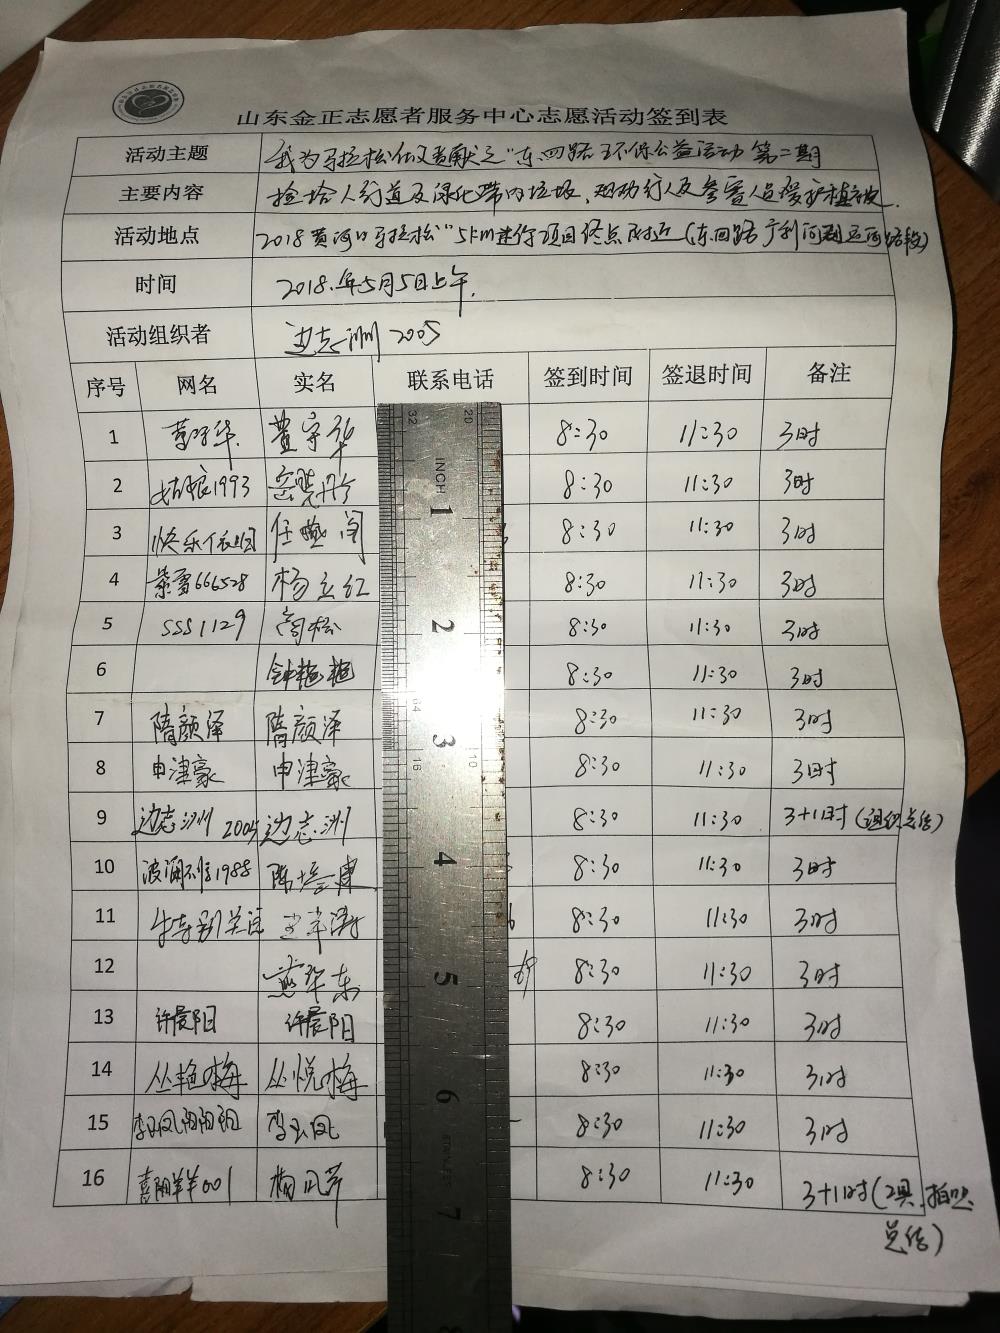 山东金正志愿者服务中心志愿活动签到表
活动主题 我为马拉松做贡献之"东四路环保公益活动 第二期
主要内容 捡拾人行道及绿化带内垃圾、劝行人及参赛人员爱护植被.
活动地点 2018黄河口马拉松"5km迷你项目终点附近(东四路 段)
时间 2018.年5月5日上午.
活动组织者 边志洲2005
序号 网名 实名 联系电话 签到时间 签退时间 备注
1 8:30 11:30 3时
2 姑娘1993 8:30 11:30 3时
3 快乐 任 8:30 11:30 3时
4 紫雪666528 杨立红 8:30 11:30 3时
5 SSS1129 高松 8:30 11:30 3时
6 钟艳艳 8:30 11:30 3时
7 隋颜泽 隋颜泽 8:30 11:30 3时
8 申津豪 申津豪 8:30 11:30 3时
9 边志洲2005 边志洲 8:30 11:30 3+1时(组织总结)
10 波澜不惊1988 陈培建 8:30 11:30 3时
11 特别关注 8:30 11:30 3时
12 燕华东 8:30 11:30 3时
13 许晨阳 许晨阳 8:30 11:30 3时
14 丛艳梅 丛悦梅 8:30 11:30 3时
15 李玉凤 李玉凤 8:30 11:30 3时
16 喜阳羊羊001 8:30 11:30 3+1时(工具.拍照.
总结)
INCH
32
20
1
2
64
3
16
10
4
5
6
7
8